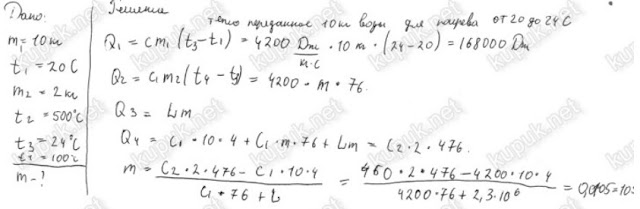 Дано:
m₁ = 10 кг
t₁ = 20 C
m₂ = 2 кг
t₂ = 500°C
t₃ = 24°C
t₄ = 100°C
m - ?
Решение
тепло переданное 10 кг воды для нагрева от 20 до 24 C
Q₁ = cm₁(t₃-t₁) = 4200 Дж/кг·C · 10 кг · (24-20) = 168000 Дж
Q₂ = c₁m₂(t₄ - t₃) = 4200 · m · 76
Q₃ = Lm
Q₄ = C₁ · 10 · 4 + C₁ · m · 76 + Lm = C₂ · 2 · 476.
m = (C₂ · 2 · 476 - C₁ · 10 · 4)/(C₁ · 76 + L) = (460 · 2 · 476 - 4200 · 10 · 4)/(4200 · 76 + 2,3·10⁶) =
kupuk.net